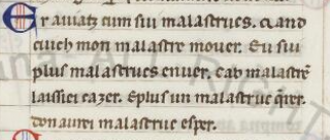 Er auiatz cum sui malastrucs. qand
cuich mon malastre mouer. Eu sui
plus malastrucs enuer. Cab malastre
laissiei cazer. Eplus un malastruc
don aurei malastruc esper.